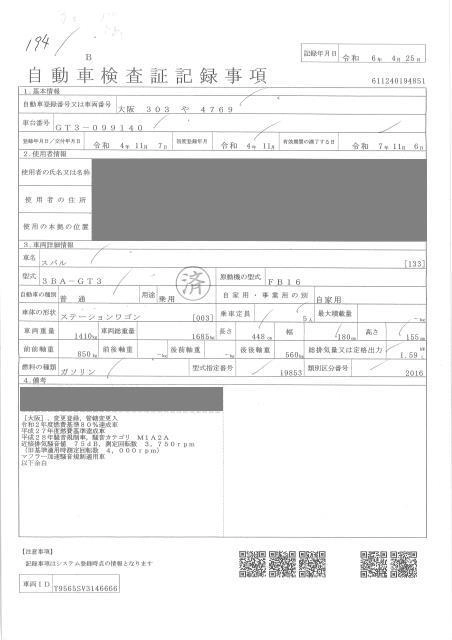 194
B
記録年月日 令和 6年 4月 25日
自動車検査証記録事項
611240194851
1.基本情報
自動車登録番号又は車両番号 大阪 303 や 4769
車台番号 GT3-099140
登録年月日/交付年月日 令和 4年 11月 7日 初度登録年月 令和 4年 11月 有効期間の満了する日 令和 7年 11月 6日
2.使用者情報
使用者の氏名又は名称
使用者の住所
使用の本拠の位置
3.車両詳細情報
車名 スバル [133]
型式 3BA-GT3 済 原動機の型式 FB16
自動車の種別 普通 用途 乗用 自家用・事業用の別 自家用
車体の形状 ステーションワゴン [003] 乗車定員 5人 最大積載量 -kg
車両重量 1410kg 車両総重量 1685kg 長さ 448cm 幅 180cm 高さ 155cm
前前軸重 850kg 前後軸重 -kg 後前軸重 -kg 後後軸重 560kg 総排気量又は定格出力 1.59
燃料の種類 ガソリン 型式指定番号 19853 類別区分番号 2016
4.備考
[大阪]、変更登録、管轄変更入
令和2年度燃費基準80%達成車
平成27年度燃費基準達成車
平成28年騒音規制車、騒音カテゴリ M1A2A
近接排気騒音値 75dB、測定回転数 3,750rpm
(旧基準適用時測定回転数 4,000rpm)
マフラー加速騒音規制適用車
以下余白
【注意事項】
記録事項はシステム登録時点の情報となります
車両ID T9565SV3146666